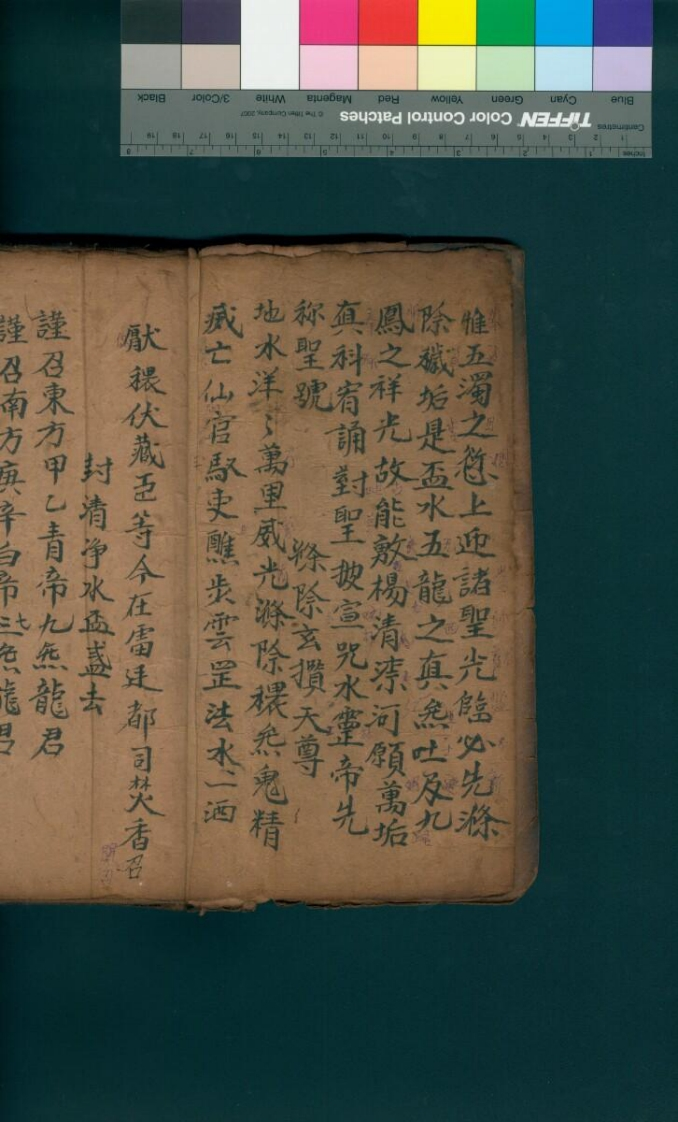 惟五濁之愆上迎諸聖光臨必先滌
除穢垢是盃水五龍之真炁吐及九
鳳之祥光故能敷楊清㳿河願萬垢
真科宥誦對聖披宣咒水靈帝先
称聖號
滌除玄攢天尊
地水洋〻萬里威光滌除穢炁鬼精
滅亡仙官馭吏醮步雲罡法水一洒
厭穢伏藏臣等今在雷廷都司焚香召
封清净水盃盞去
謹召東方甲乙青帝九炁龍君
謹召南方庚辛白帝七炁龍君
Black
3/Color
White
Magenta
Red
Yellow
Green
Cyan
Blue
© The Tiffen Company, 2007
TIFFEN Color Control Patches
Centimetres
Inches